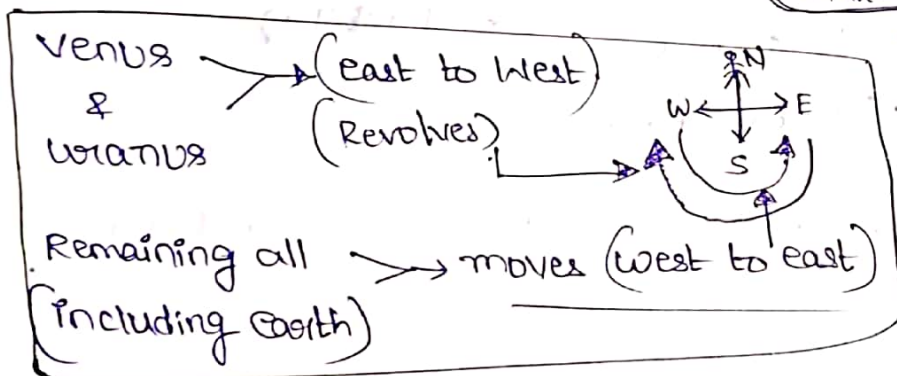 Venus
&
Uranus
(east to West)
(Revolves)
N
W E
S
Remaining all
(including Earth)
moves (west to east)